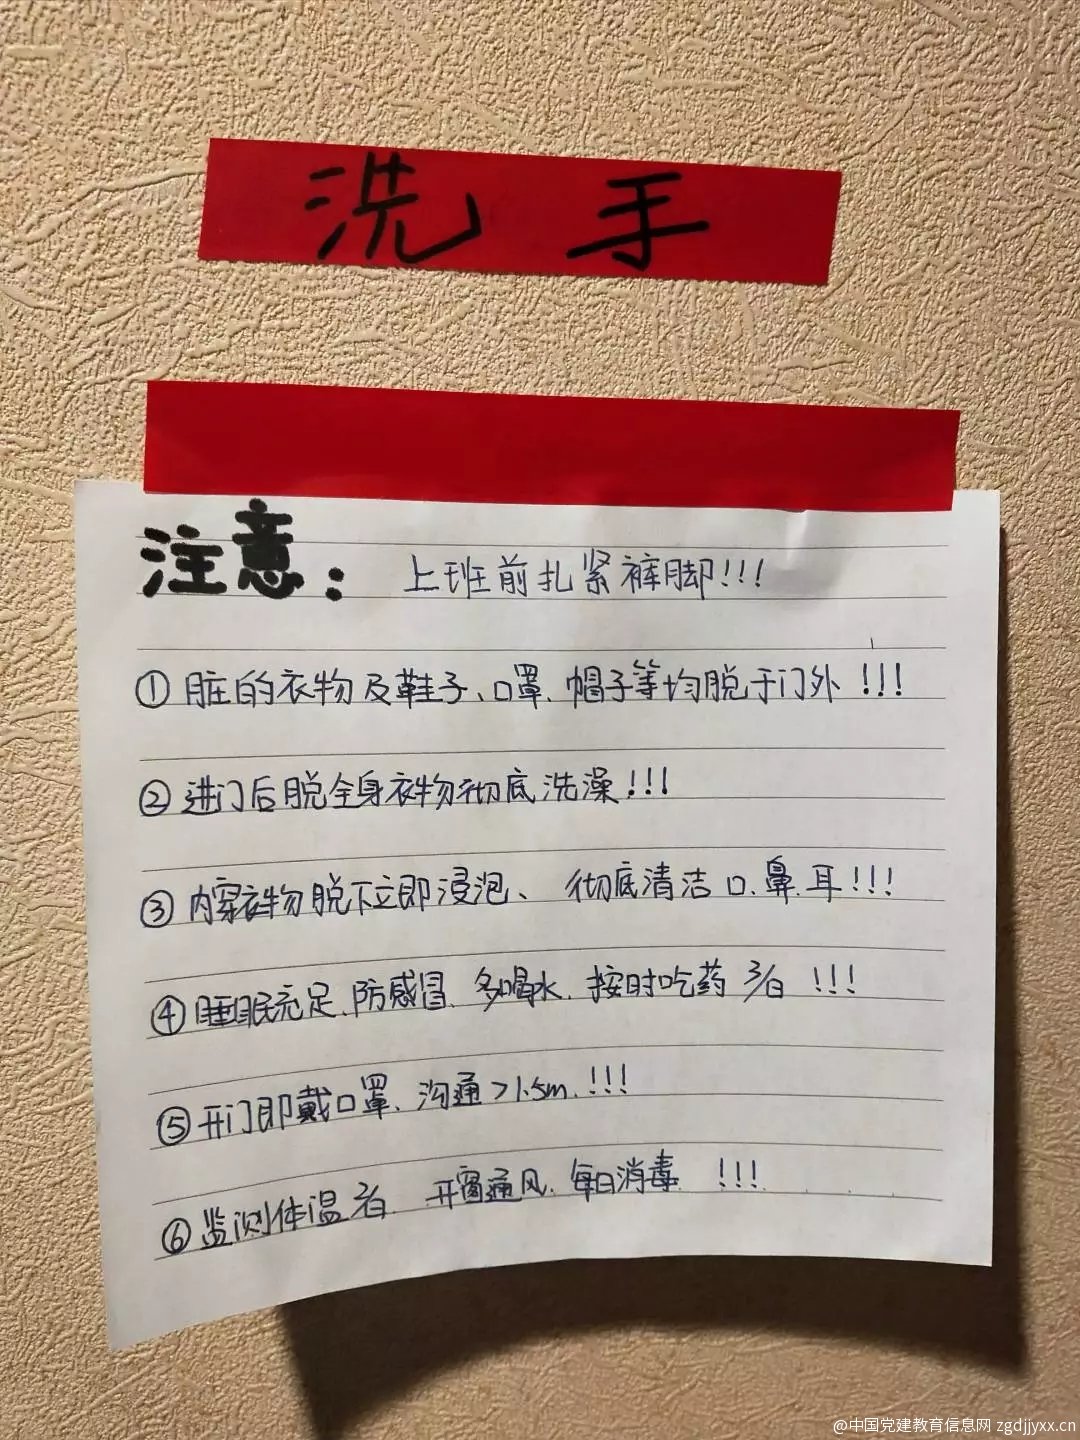 洗手
注意：上班前扎紧裤脚!!!
①脏的衣物及鞋子、口罩、帽子等均脱于门外!!!
②进门后脱全身衣物彻底洗澡!!!
③内穿衣物脱下立即浸泡、彻底清洁口、鼻、耳!!!
④睡眠充足、防感冒、多喝水、按时吃药 3/日 !!!
⑤开门即戴口罩、沟通>1.5m.!!!
⑥监测体温 、开窗通风、每日消毒 !!!
@中国党建教育信息网 zgdjjyxx.cn